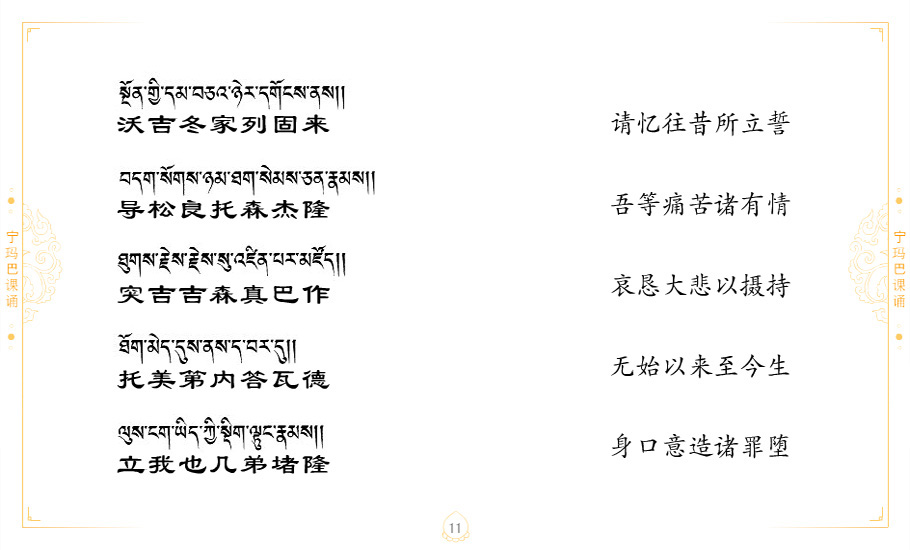 སྔོན་གྱི་དམ་བཅའ་ཉེར་དགོངས་ནས།།
沃吉冬家列固来
请忆往昔所立誓
བདག་སོགས་ཉམ་ཐག་སེམས་ཅན་རྣམས།།
导松良托森杰隆
吾等痛苦诸有情
ཐུགས་རྗེས་རྗེས་སུ་འཛིན་པར་མཛོད།།
突吉吉森真巴作
哀恳大悲以摄持
ཐོག་མེད་དུས་ནས་ད་བར་དུ།།
托美第内答瓦德
无始以来至今生
ལུས་ངག་ཡིད་ཀྱི་སྡིག་ལྟུང་རྣམས།།
立我也几弟堵隆
身口意造诸罪堕
宁玛巴课诵
宁玛巴课诵
11